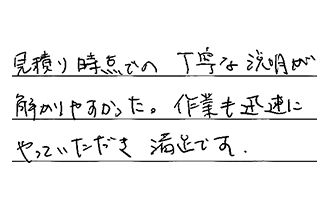 見積り時点での 丁寧な説明が
解かりやすかった。作業も迅速に
やっていただき 満足です.